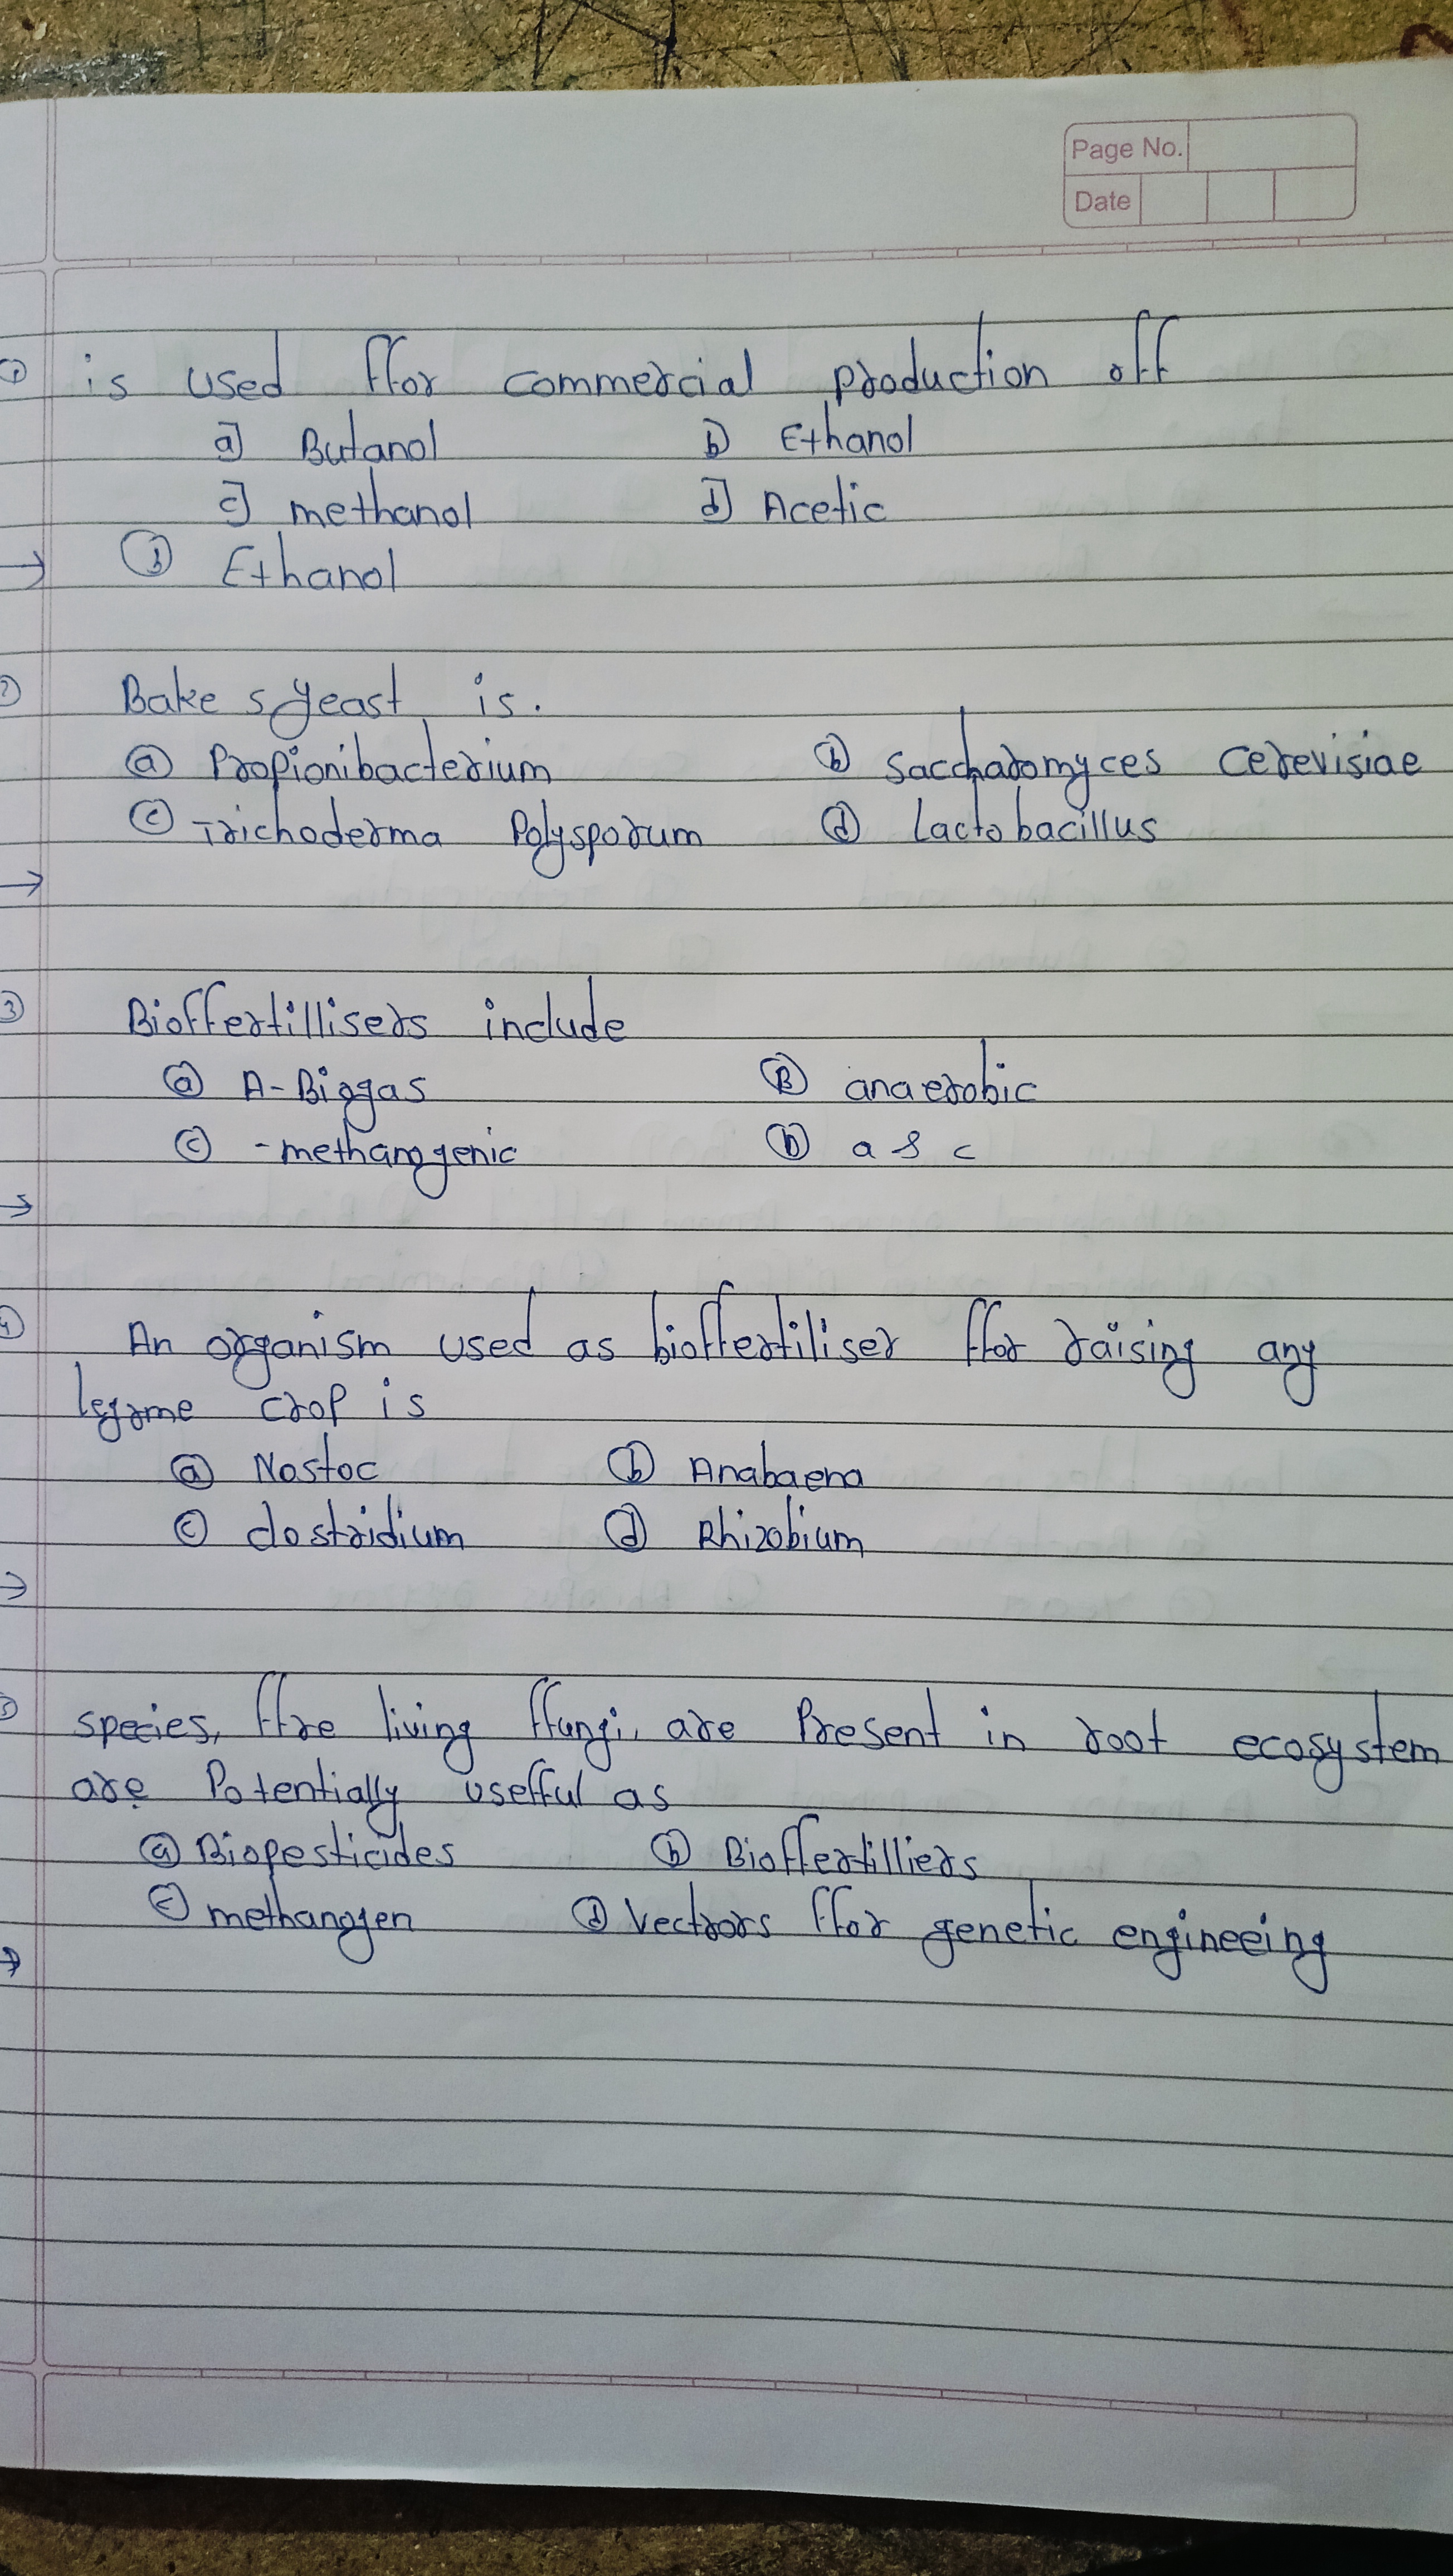 Page No.
Date
① is used ffor commercial production off
a] Butanol b] Ethanol
c] methanol d] Acetic
→ ⓑ Ethanol
② Bake s yeast is.
ⓐ Propionibacterium ⓑ Saccharomyces cerevisiae
ⓒ Trichoderma Polysporum ⓓ Lactobacillus
→
③ Bioffertillisers include
ⓐ A-Biogas Ⓑ anaerobic
ⓒ -methanogenic ⓑ a & c
→
④ An organism used as bioffertiliser ffor raising any
legome crop is
ⓐ Nostoc ⓑ Anabaena
ⓒ clostridium ⓓ Rhizobium
→
⑤ species, ffre living ffungi, are Present in root ecosystem
are Potentially usefful as
ⓐ Biopesticides ⓑ Bioffertilliers
ⓒ methanogen ⓓ vectrors ffor genetic engineeing
→